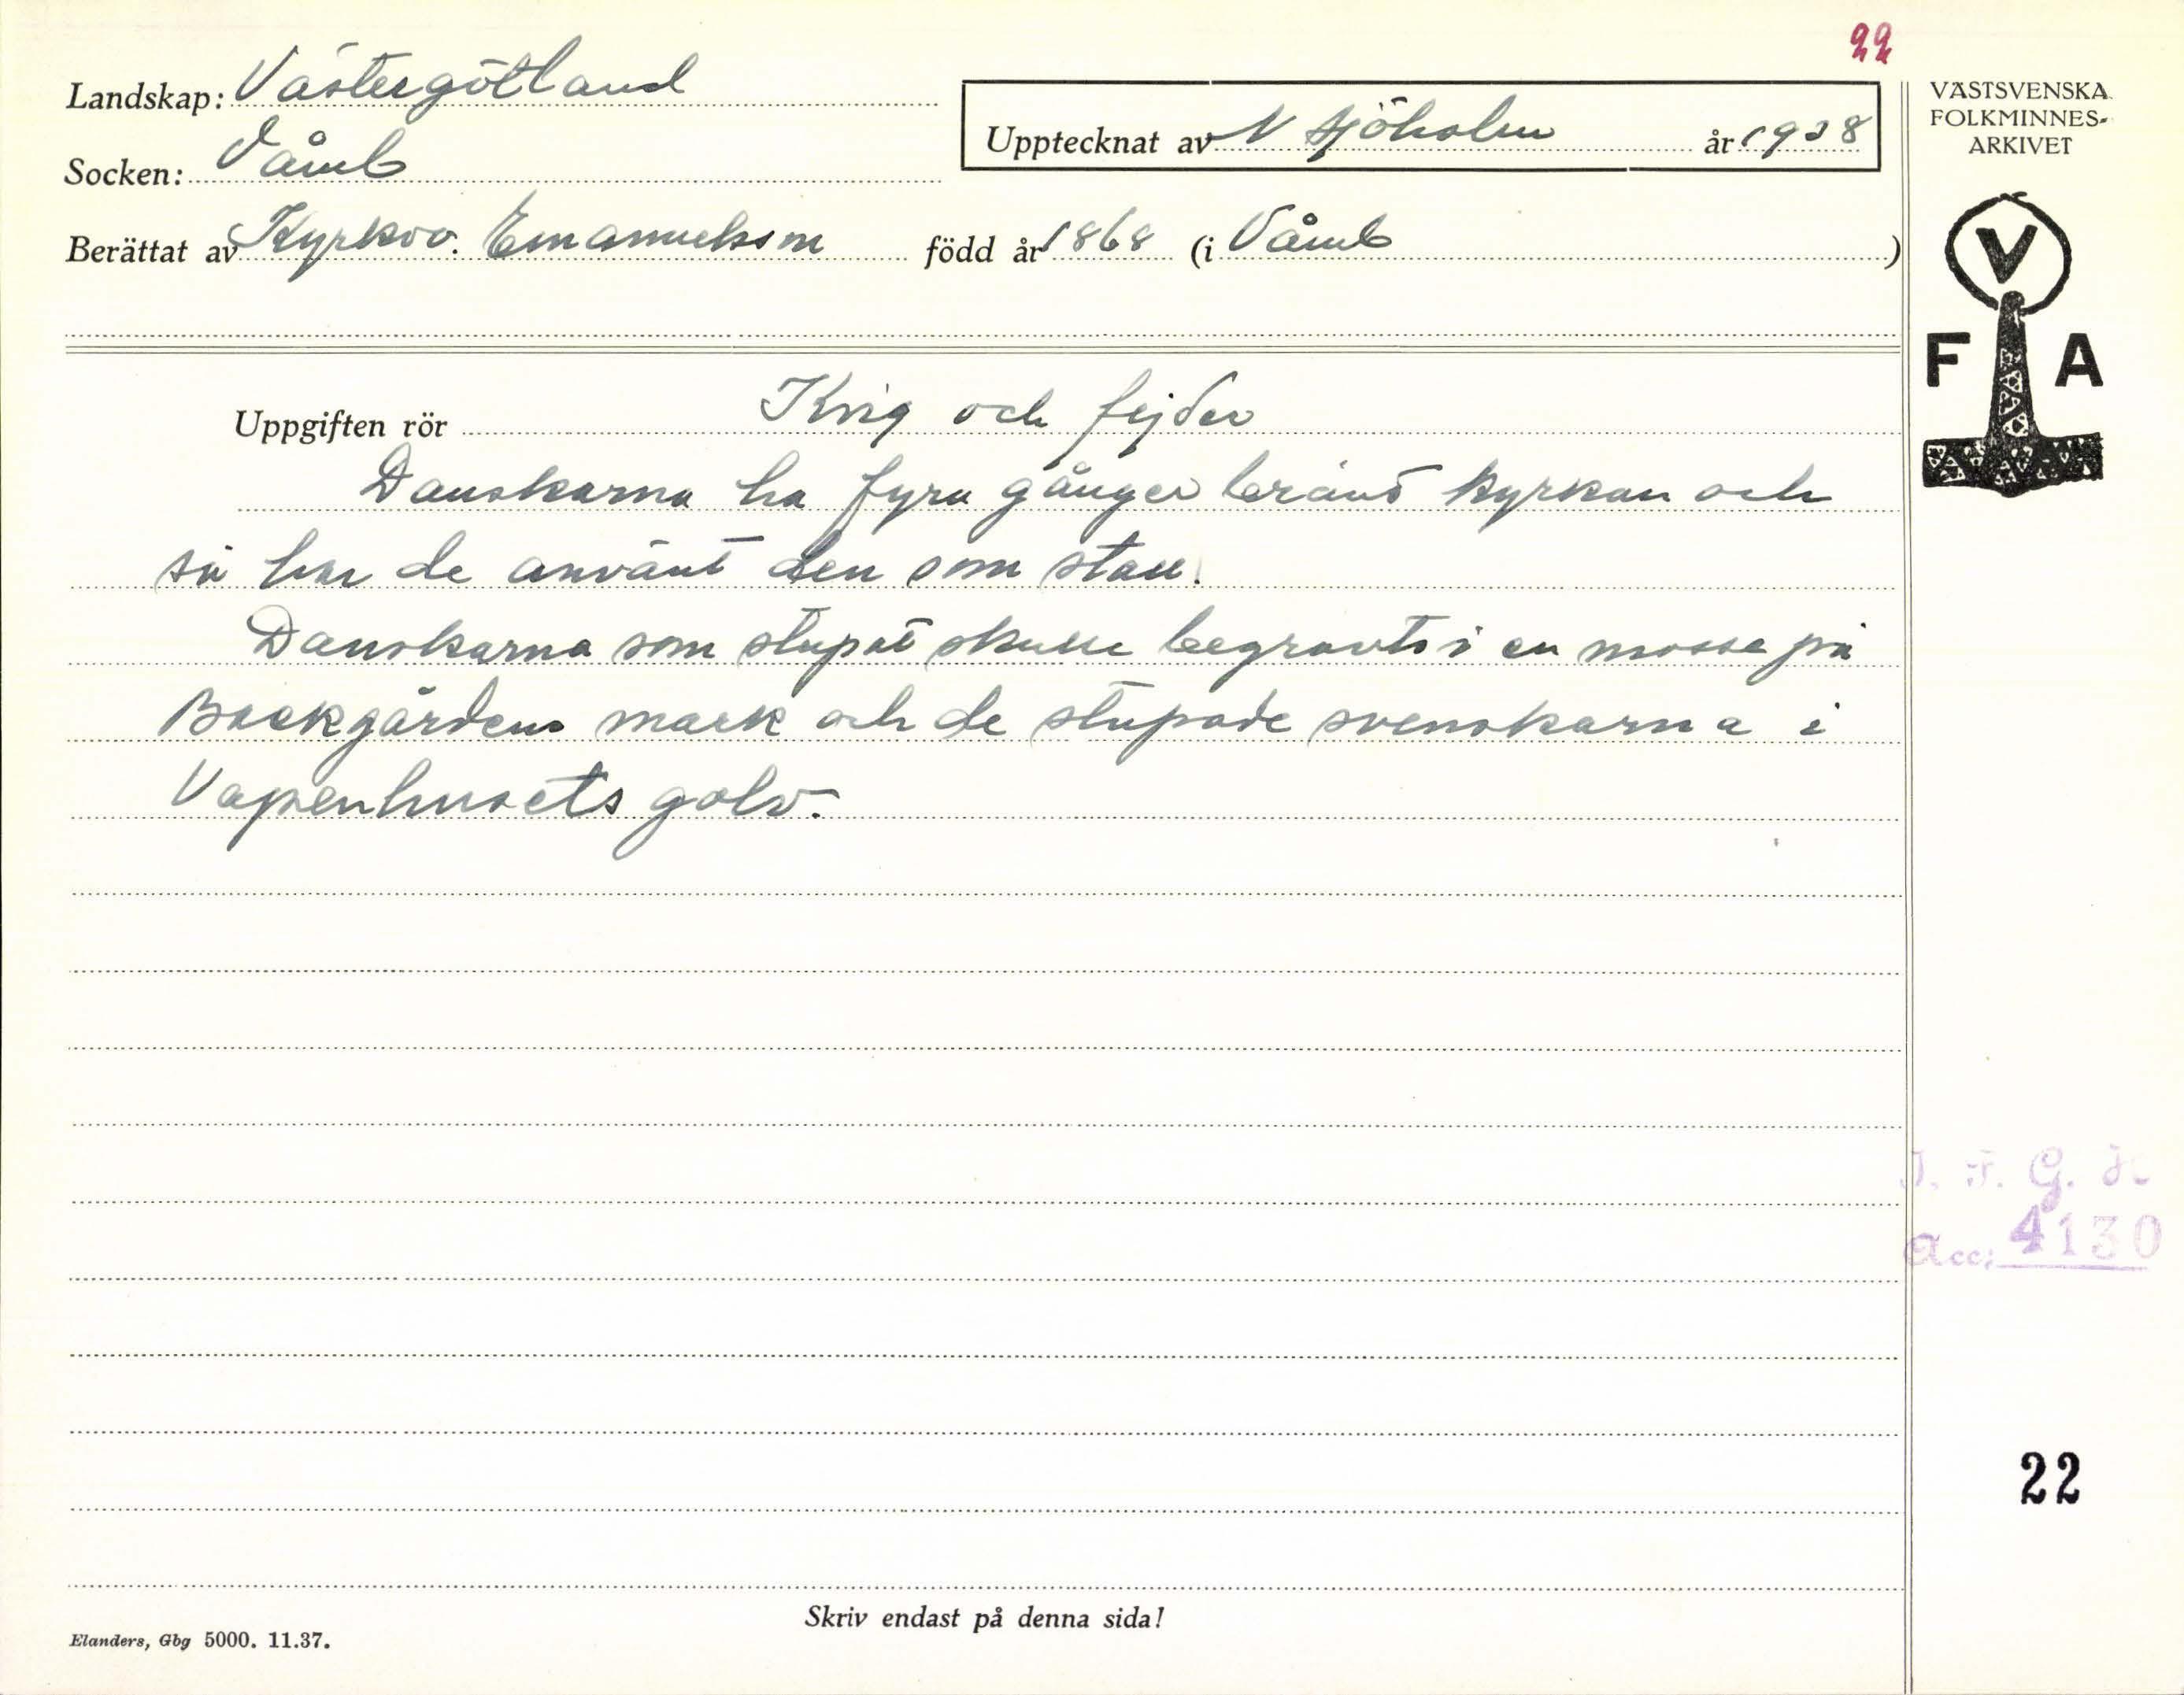 22
Landskap: Västergötland
Socken: Våmb
Upptecknat av N Sjöholm år 1938
Berättat av Kyrkvv. Emanuelsson född år 1868 (i Våmb )
VÄSTSVENSKA
FOLKMINNES-
ARKIVET
V
F A
Uppgiften rör Krig och fejder
Danskarna ha fyra gånger bränt kyrkan och
så har de använt den som stall.
Danskarna som stupat skulle begravts i en mosse på
Backgårdens mark och de stupade svenskarna i
Vapenhusets golv.
I. F. G. H
Acc: 4130
22
Skriv endast på denna sida!
Elanders, Gbg 5000. 11.37.